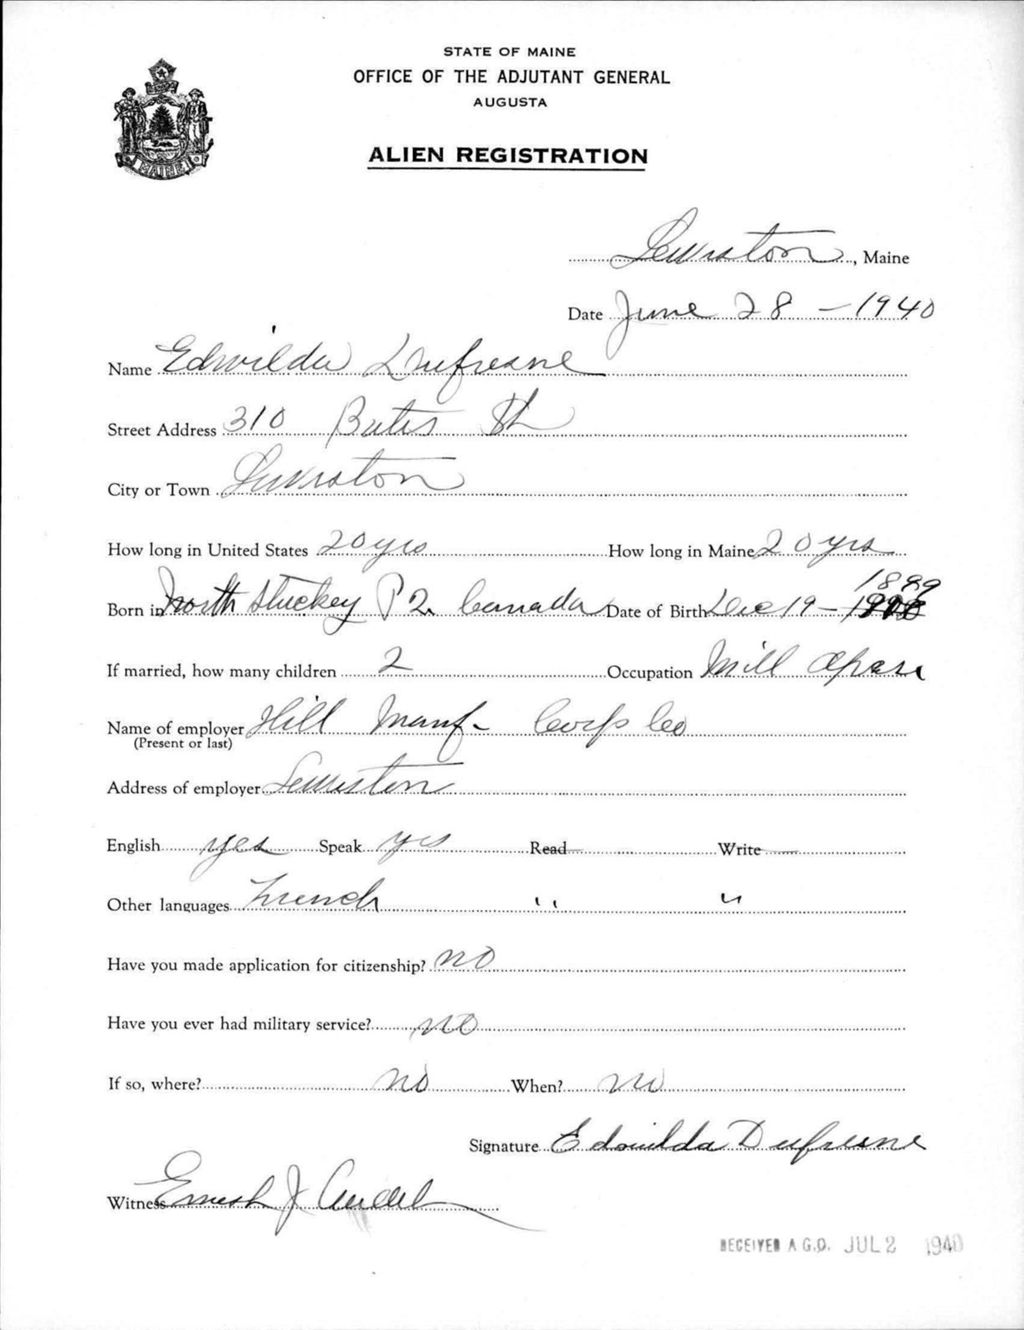 STATE OF MAINE
OFFICE OF THE ADJUTANT GENERAL
AUGUSTA
ALIEN REGISTRATION
MAINE
Lewiston, Maine
Date June 28 - 1940
Name Edwilda Dufresne
Street Address 310 Bates St
City or Town Lewiston
How long in United States 20 yrs How long in Maine 20 yrs
1899
Born in North Stuckey P Q. Canada Date of Birth Dec 19 -
If married, how many children 2 Occupation Mill Oper
Name of employer Hill Manf- Corp Co
(Present or last)
Address of employer Lewiston
English yes Speak yes Read — Write —
Other languages French " "
Have you made application for citizenship? no
Have you ever had military service? no
If so, where? no When? no
Signature Edwilda Dufresne
Witness Ernest J.
RECEIVED A.G.O. JUL 2 1940